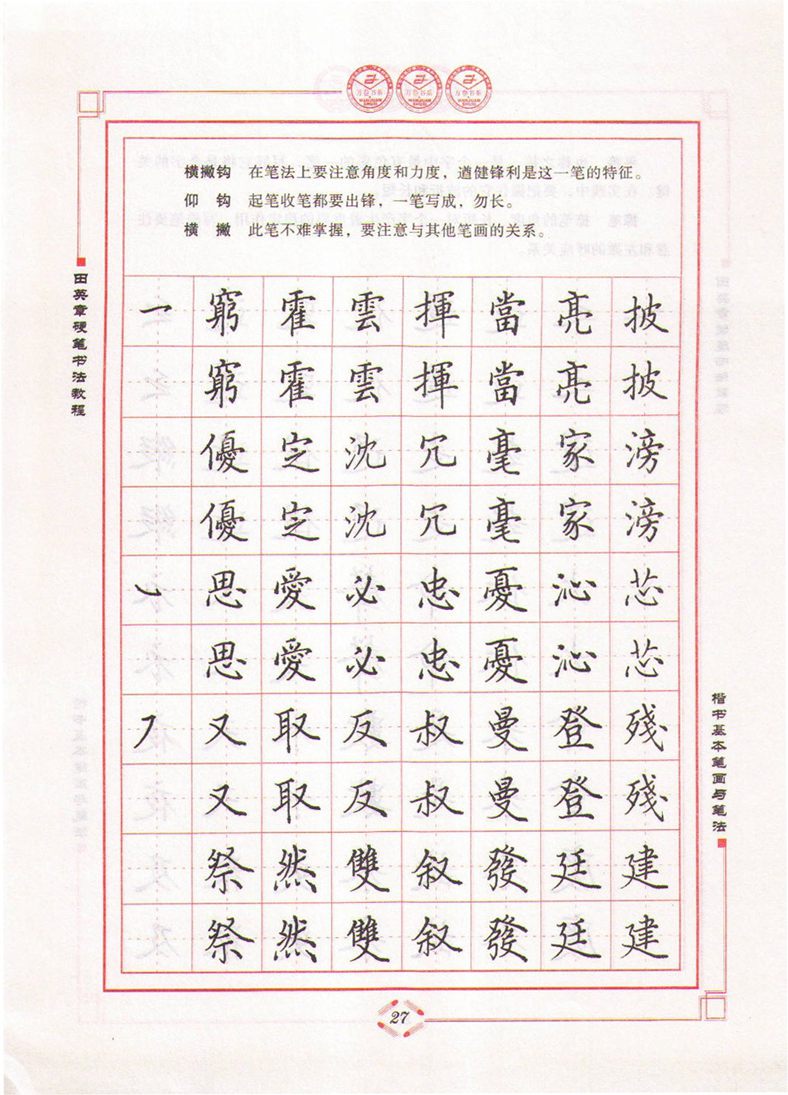 万卷书系 万卷书系 万卷书系
横撇钩 在笔法上要注意角度和力度，遒健锋利是这一笔的特征。
仰钩 起笔收笔都要出锋，一笔写成，勿长。
横撇 此笔不难掌握，要注意与其他笔画的关系。
田英章硬笔书法教程
窮霍雲揮當亮披
窮霍雲揮當亮披
優定沈冗毫家滂
優定沈冗毫家滂
思愛必忠憂沁芯
思愛必忠憂沁芯
又取反叔曼登殘
又取反叔曼登殘
祭然雙叙發廷建
祭然雙叙發廷建
楷书基本笔画与笔法
27